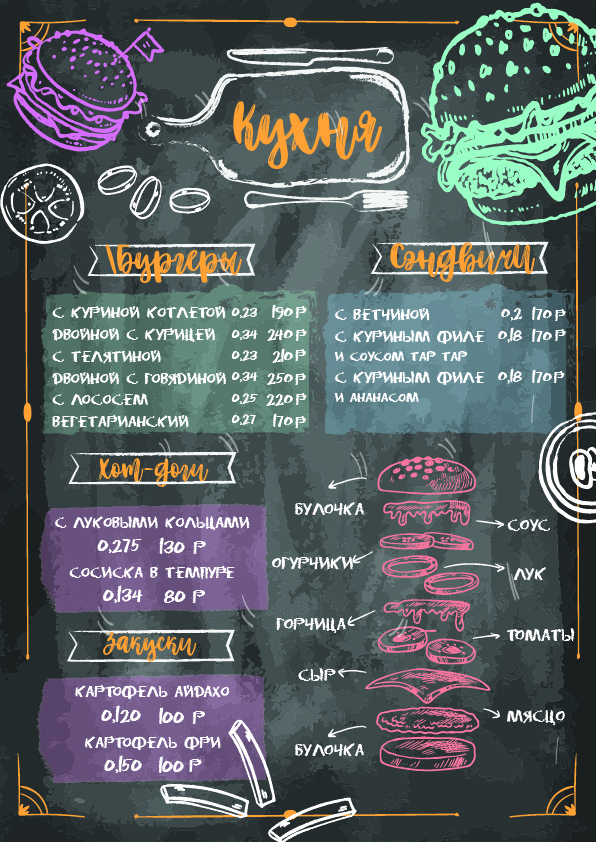 Кухня
Бургеры
С КУРИНОЙ КОТЛЕТОЙ 0,23 190 Р
ДВОЙНОЙ С КУРИЦЕЙ 0,34 240 Р
С ТЕЛЯТИНОЙ 0,23 210 Р
ДВОЙНОЙ С ГОВЯДИНОЙ 0,34 250 Р
С ЛОСОСЕМ 0,25 220 Р
ВЕГЕТАРИАНСКИЙ 0,27 170 Р
Сэндвичи
С ВЕТЧИНОЙ 0,2 170 Р
С КУРИНЫМ ФИЛЕ 0,18 170 Р
И СОУСОМ ТАР ТАР
С КУРИНЫМ ФИЛЕ 0,18 170 Р
И АНАНАСОМ
Хот-доги
С ЛУКОВЫМИ КОЛЬЦАМИ
0,275 130 Р
СОСИСКА В ТЕМПУРЕ
0,134 80 Р
Закуски
КАРТОФЕЛЬ АЙДАХО
0,120 100 Р
КАРТОФЕЛЬ ФРИ
0,150 100 Р
БУЛОЧКА
СОУС
ОГУРЧИКИ
ЛУК
ГОРЧИЦА
ТОМАТЫ
СЫР
МЯСЦО
БУЛОЧКА